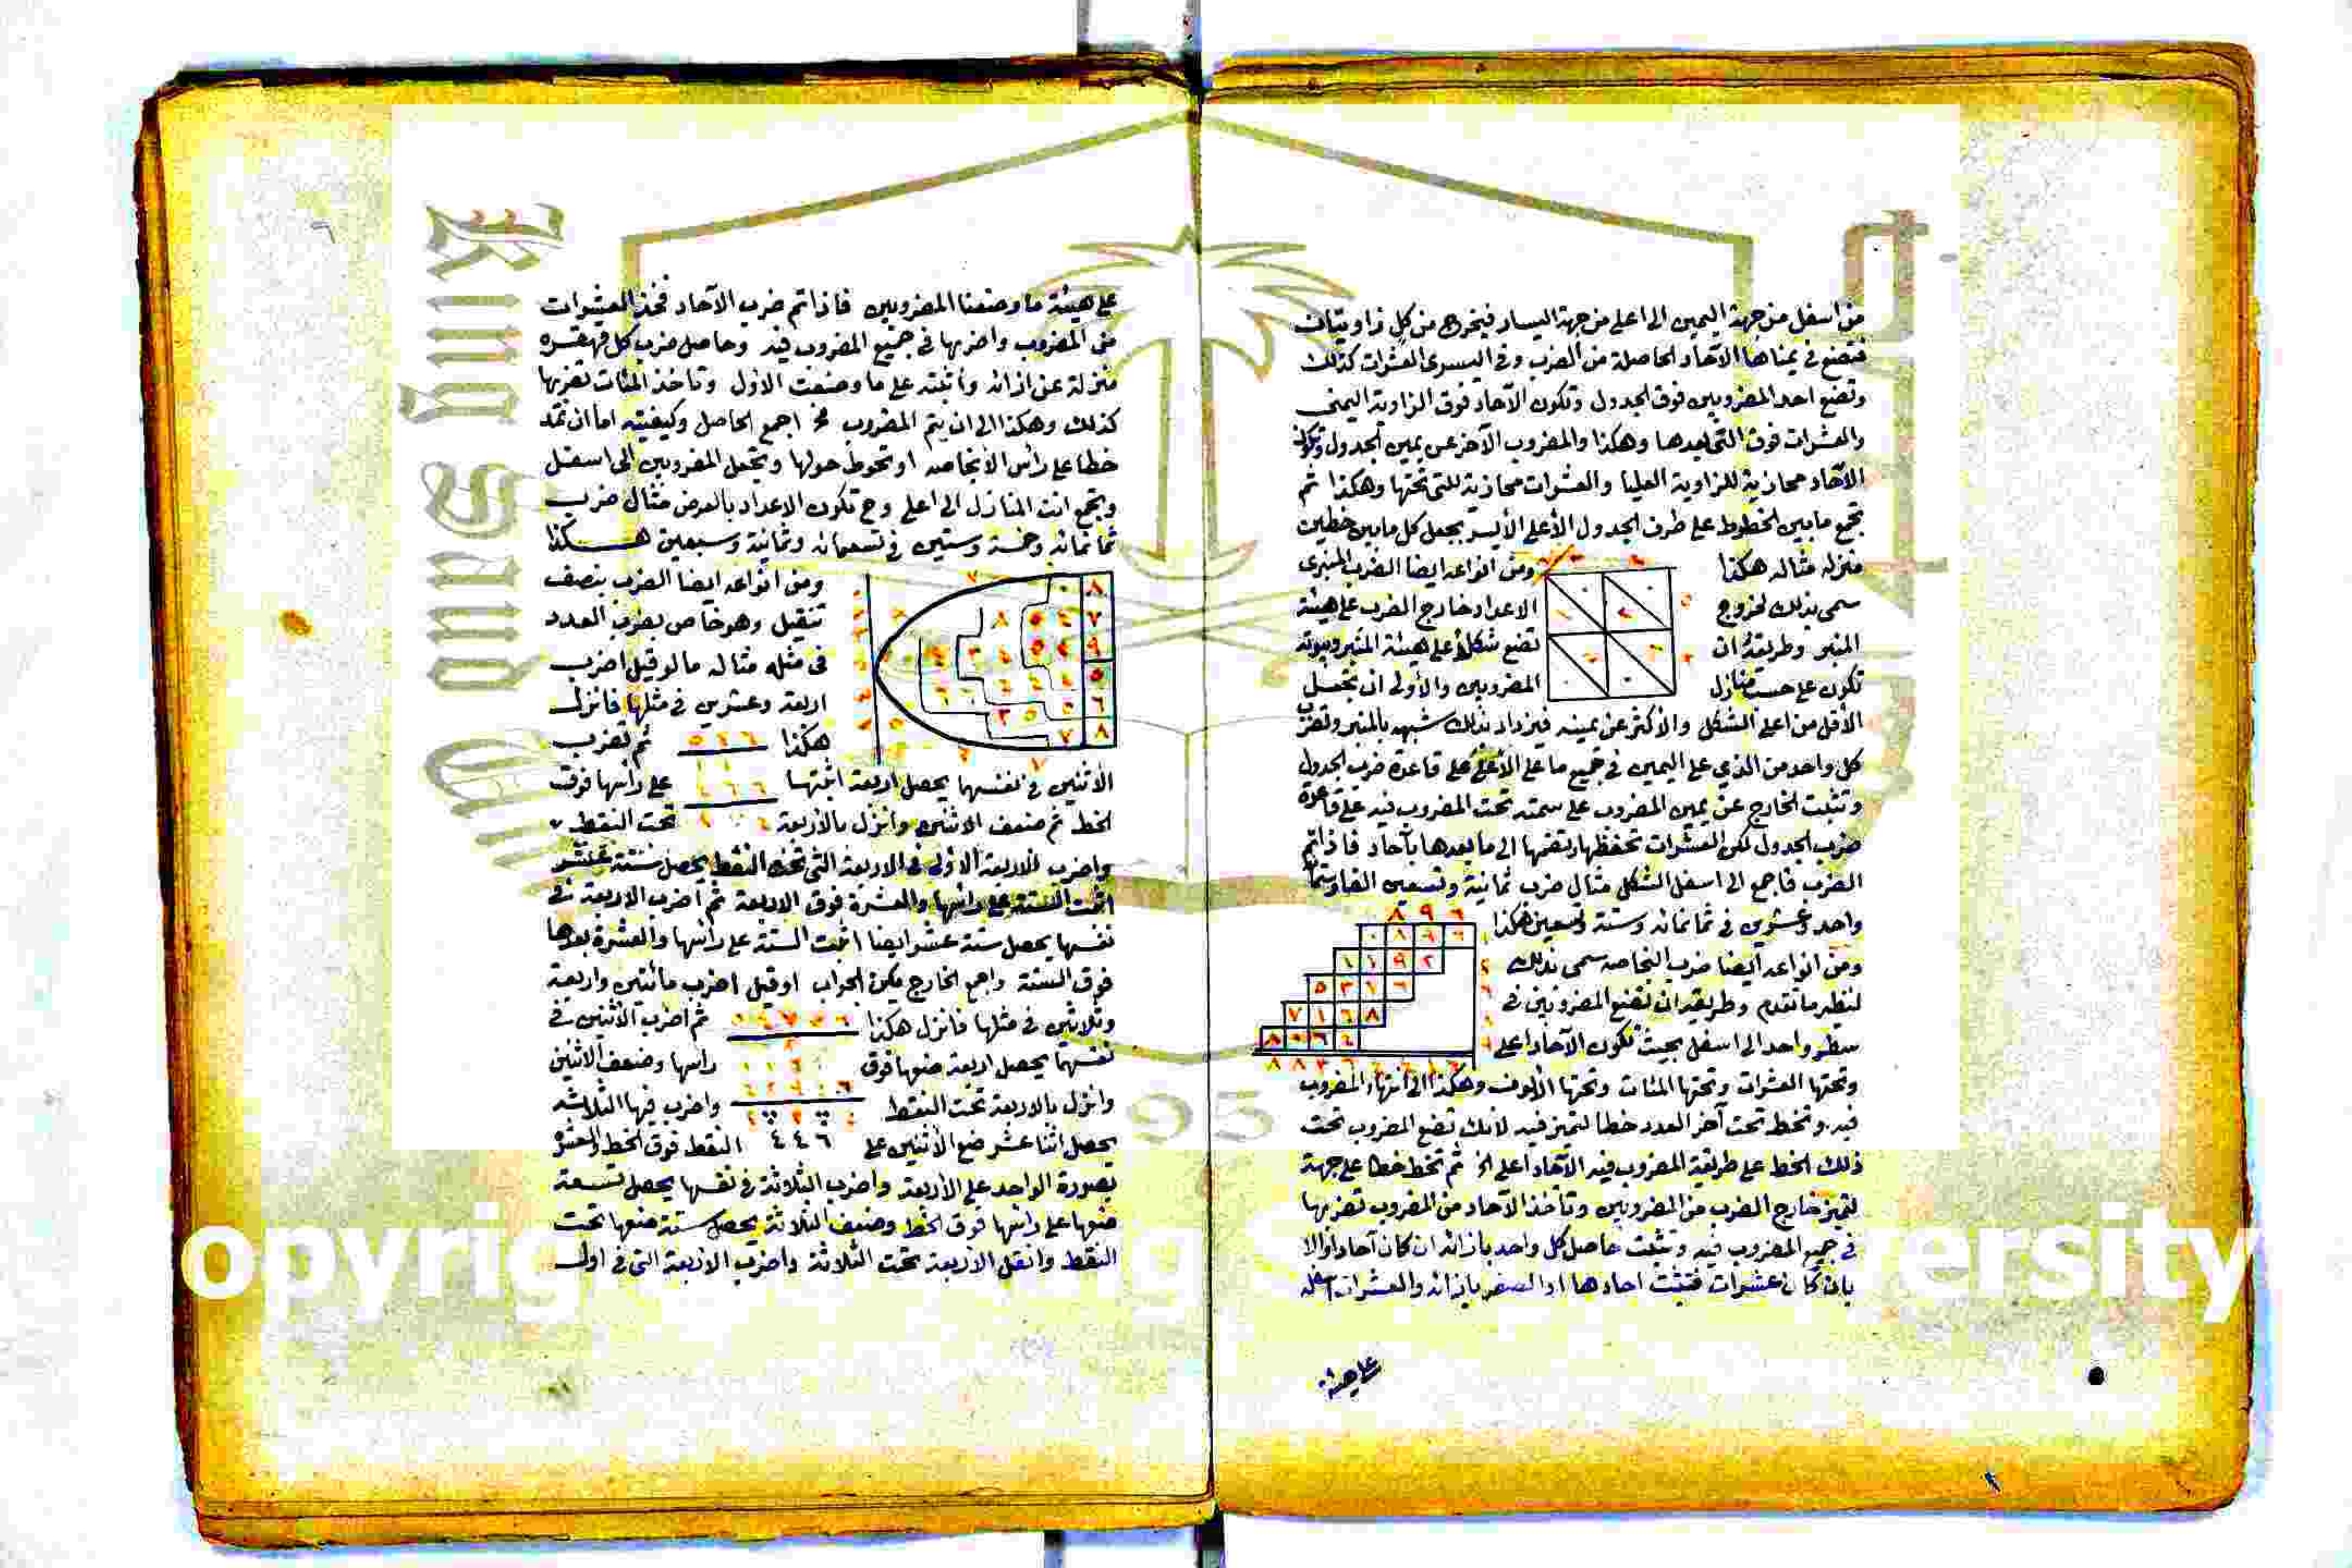 من اسفل من جهة اليمين الى اعلى من جهة اليسار فيخرج من كل زاويتان
فتضع في يمناها الآحاد الحاصلة من الضرب وفي اليسرى العشرات كذلك
وتضع احد المضروبين فوق الجدول وتكون الآحاد فوق الزاوية اليمنى
والعشرات فوق التي بعدها وهكذا والمضروب الآخر عن يمين الجدول وتكون
الآحاد محازية للزاوية العليا والعشرات محازية للتي تحتها وهكذا ثم
تجمع مابين الخطوط على طرف الجدول الأعلى الأيسر بجعل كل مابين خطين
منزله مثاله هكذا ومن انواعه ايضا الضرب المنبرى
سمى بذلك لخروج الاعداد خارج الضرب على هيئة
المنبر وطريقه ان تضع شكلا على هيئة المنبر وبيوته
تكون على حسب منازل المضروبين والأولى ان تجعل
الأقل من اعلى الشكل والاكثر عن يمينه فيزداد بذلك شبهه بالمنبر وتضرب
كل واحد من الذي على اليمين في جميع ما على الأعلى على قاعدة ضرب الجدول
وتثبت الخارج عن يمين المضروب على سمته تحت المضروب فيه على قاعدة
ضرب الجدول لكن العشرات تحفظها وتضمها الى ما بعدها بآحاد فاذا تم
الضرب فاجمع الى اسفل الشكل مثال ضرب ثمانية وتسعين الفا وستمائة
واحد وعشرين في ثمانمائه وستة وتسعين هكذا
٨ ٩ ٦
ومن انواعه ايضا ضرب النحاصه سمى بذلك
لنظر ماتقدم وطريقه ان تضع المضروبين في
سطر واحد الى اسفل بحيث تكون الآحاد اعلى
وتحتها العشرات وتحتها المئات وتحتها الألوف وهكذا الى انتهاء المضروب
فيه وتخط تحت آخر العدد خطا لتميز فيه لانك تضع المضروب تحت
ذلك الخط على طريقة المضروب فيه الآحاد اعلى الخ ثم تخط خطا على جهة
لتميز خارج الضرب من المضروبين وتأخذ الآحاد من المضروب تضربها
في جميع المضروب فيه وتثبت حاصل كل واحد بازائه ان كان آحادا والا
بان كان عشرات فتثبت احادها او الصفر بازائه والعشرات اسفله
على هيئة
على هيئة ما وضعنا المضروبين فاذا تم ضرب الآحاد فخذ العشرات
من المضروب واضربها في جميع المضروب فيه وحاصل ضرب كل
منزلة عن ازائه وأثبته على ما وضعت الاول وتأخذ المئات تضربها
كذلك وهكذا الى ان يتم المضروب اجمع الحاصل وكيفيته اما ان تمد
خطا على رأس الانجاصه او تحوط حولها وتجعل المضروبين الى اسفل
وتجمع انت المنازل الى اعلى وح تكون الاعداد بالعرض مثال ضرب
ثمانمائه وخمسة وستين في تسعمائه وثمانية وسبعين هكذا
ومن انواعه ايضا الضرب بنصف
تنقيل وهو خاص بضرب العدد
في مثله مثاله مالو قيل اضرب
اربعة وعشرين في مثلها فانزل
هكذا ثم تضرب
الاثنين في نفسهما يحصل اربعة اثبتها على رأسها فوق
الخط ثم ضعف الاثنين وانزل بالاربعة تحت النقط
واضرب الاربعة الأولى في الاربعة التي تحت النقط يحصل ستة عشر
اثبت الستة على رأسها والعشرة فوق الاربعة ثم اضرب الاربعة في
نفسها يحصل ستة عشر ايضا اثبت الستة على رأسها والعشرة بعدها
فوق الستة واجمع الخارج يكن الجواب اوقيل اضرب مائتين واربعة
وثلاثين في مثلها فانزل هكذا ثم اضرب الاثنين في
نفسهما يحصل اربعة ضعها فوق رأسها وضعف الاثنين
وانزل بالاربعة تحت النقط واضرب فيها الثلاثة
يحصل اثنا عشر ضع الاثنين على ٤ ٤ ٦ النقط فوق الخط والعشرة
بصورة الواحد على الاربعة واضرب الثلاثة في نفسها يحصل تسعة
ضعها على رأسها فوق الخط وضعف الثلاثة يحصل ستة ضعها تحت
النقط وانقل الاربعة تحت الثلاثة واضرب الاربعة التي في اول